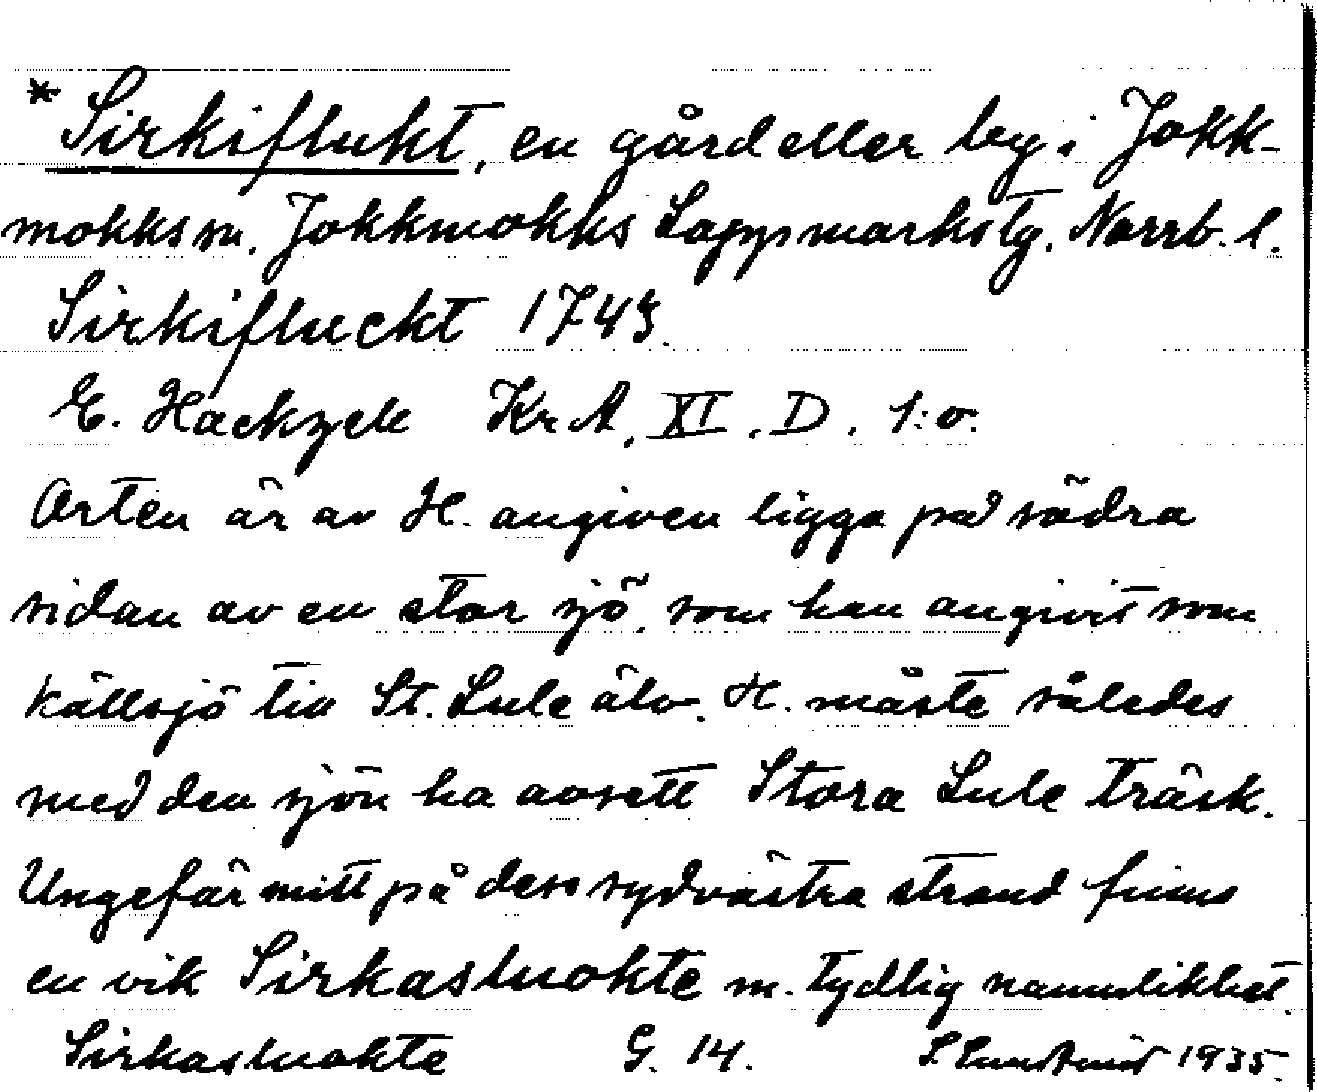 * Sirkiflukt, en gård eller by i Jokk-
mokks sn. Jokkmokks Lappmarks tg. Norrb. l.
Sirkifluckt 1743.
E. Hackzell Kr A. XI. D. 1:o.
Orten är av H. angiven ligga på södra
sidan av en stor sjö, som han angivit som
källsjö till St. Lule älv. H. måste således
med den sjön ha avsett Stora Lule träsk.
Ungefär mitt på dess sydvästra strand finns
en vik Sirkasluokte m. tydlig namnlikhet.
Sirkasluokte G. 14. 1935.